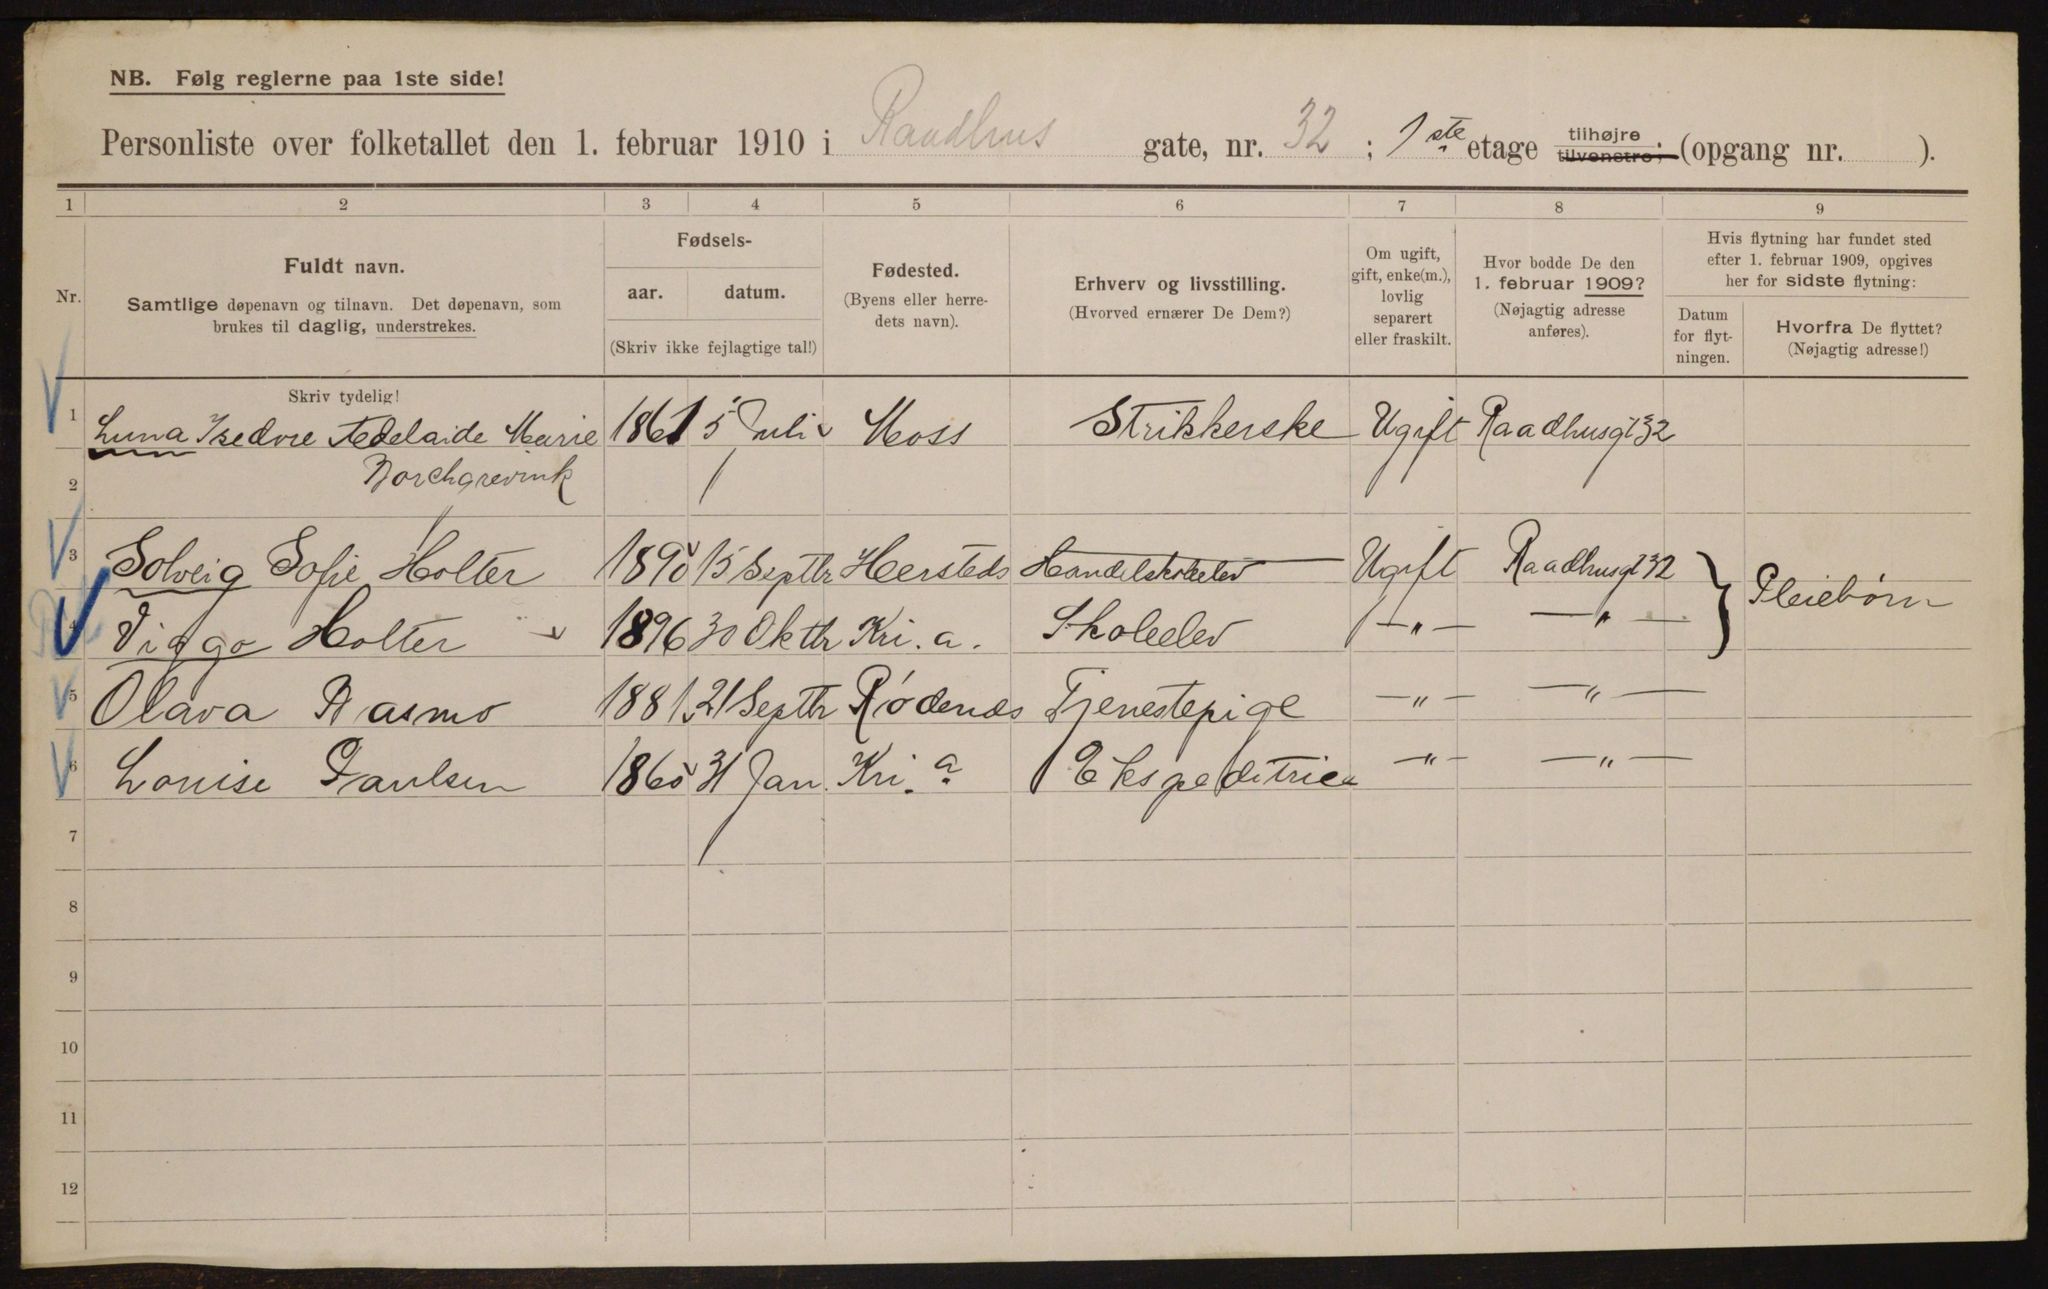 NB. Følg reglerne paa 1ste side!
Personliste over folketallet den 1. februar 1910 i Raadhus gate, nr. 32 ; 1ste etage tilhøjre tilvenstre; (opgang nr. ).
1 2 3 4 5 6 7 8 9
Nr.
Fuldt navn.
Samtlige døpenavn og tilnavn. Det døpenavn, som
brukes til daglig, understrekes.
Fødsels-
aar. datum.
(Skriv ikke fejlagtige tal!)
Fødested.
(Byens eller herre-
dets navn).
Erhverv og livsstilling.
(Hvorved ernærer De Dem?)
Om ugift,
gift, enke(m.),
lovlig
separert
eller fraskilt.
Hvor bodde De den
1. februar 1909?
(Nøjagtig adresse
anføres).
Hvis flytning har fundet sted
efter 1. februar 1909, opgives
her for sidste flytning:
Datum
for flyt-
ningen.
Hvorfra De flyttet?
(Nøjagtig adresse!)
Skriv tydelig!
1 Luna Isedore Adelaide Marie 1861 5 Juli Moss Strikkerske Ugift Raadhusgt 32
2 Borchgrevink
3 Solveig Sofie Holter 1890 15 Septbr Hersteds Handelskoleelev Ugift Raadhusgt 32
Pleiebørn
4 Viggo Holter 1896 30 Oktbr Kri.a. Skoleelev —"— —"—
5 Olava Basmo 1881 21 Septbr Rødenæs Tjenestepige —"— —"—
6 Louise Paulsen 1860 31 Jan. Kri.a Ekspeditrice —"— —"—
7
8
9
10
11
12